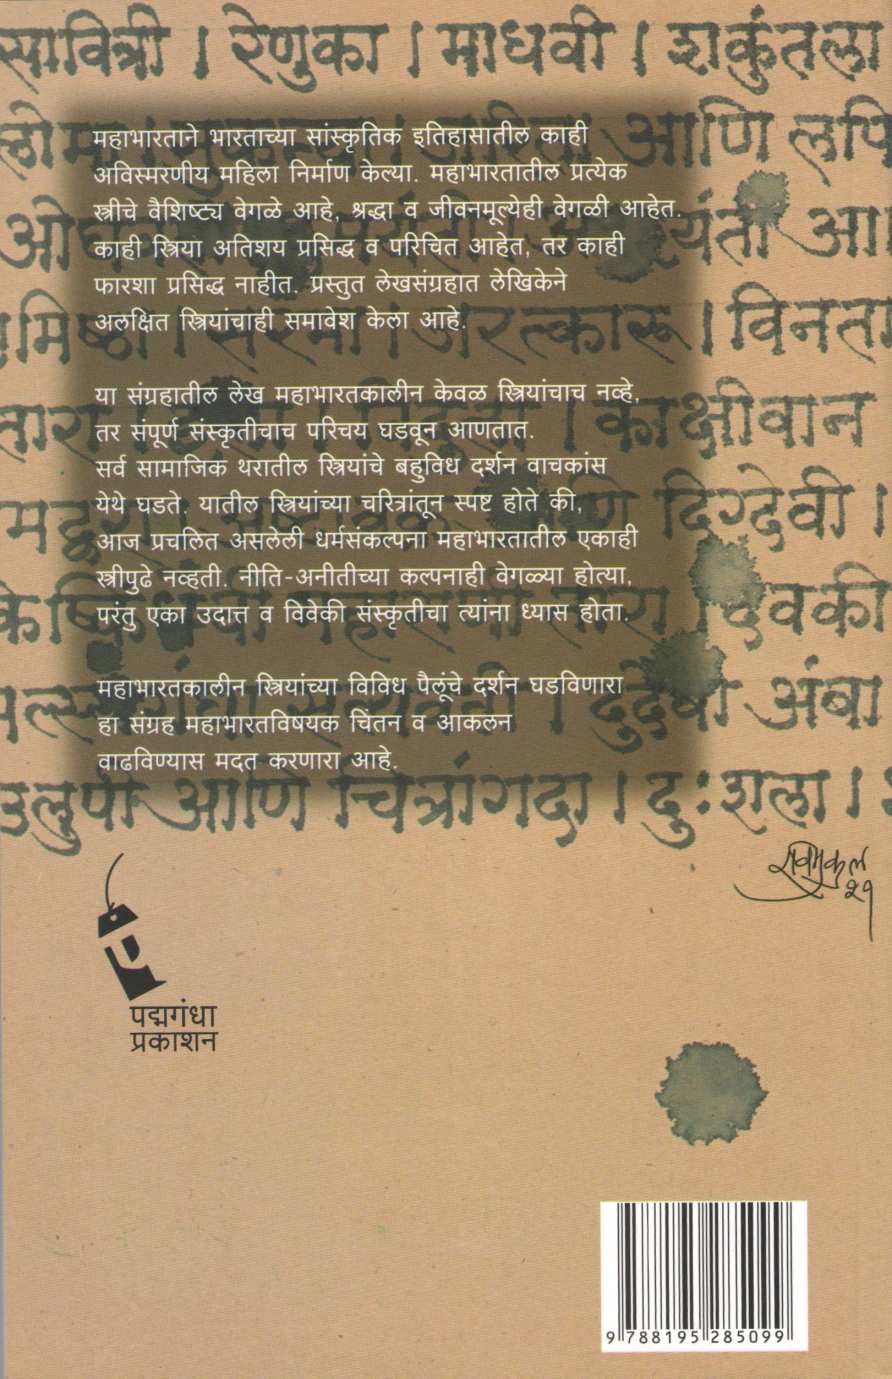 सावित्री । रेणुका । माधवी । शकुंतला
आणि लपि
महाभारताने भारताच्या सांस्कृतिक इतिहासातील काही
अविस्मरणीय महिला निर्माण केल्या. महाभारतातील प्रत्येक
स्त्रीचे वैशिष्ट्य वेगळे आहे, श्रद्धा व जीवनमूल्येही वेगळी आहेत.
काही स्त्रिया अतिशय प्रसिद्ध व परिचित आहेत, तर काही
फारशा प्रसिद्ध नाहीत. प्रस्तुत लेखसंग्रहात लेखिकेने
अलक्षित स्त्रियांचाही समावेश केला आहे.
। सरमा । जरत्कारू । विनता
या संग्रहातील लेख महाभारतकालीन केवळ स्त्रियांचाच नव्हे,
तर संपूर्ण संस्कृतीचाच परिचय घडवून आणतात.
सर्व सामाजिक थरातील स्त्रियांचे बहुविध दर्शन वाचकांस
येथे घडते. यातील स्त्रियांच्या चरित्रांतून स्पष्ट होते की,
आज प्रचलित असलेली धर्मसंकल्पना महाभारतातील एकाही
स्त्रीपुढे नव्हती. नीति-अनीतीच्या कल्पनाही वेगळ्या होत्या,
परंतु एका उदात्त व विवेकी संस्कृतीचा त्यांना ध्यास होता.
तारा
। काक्षीवान
दिग्देवी ।
तारा । देवकी
अंबा
महाभारतकालीन स्त्रियांच्या विविध पैलूंचे दर्शन घडविणारा
हा संग्रह महाभारतविषयक चिंतन व आकलन
वाढविण्यास मदत करणारा आहे.
उलुपी आणि चित्रांगदा । दुःशला ।
रविमुकुल
२१
पद्मगंधा
प्रकाशन
9 788195 285099